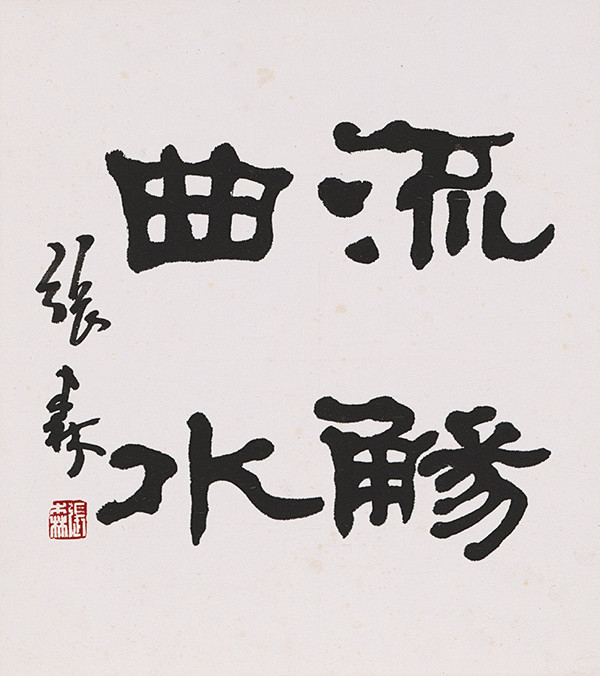 流觴
曲水
張森
張森